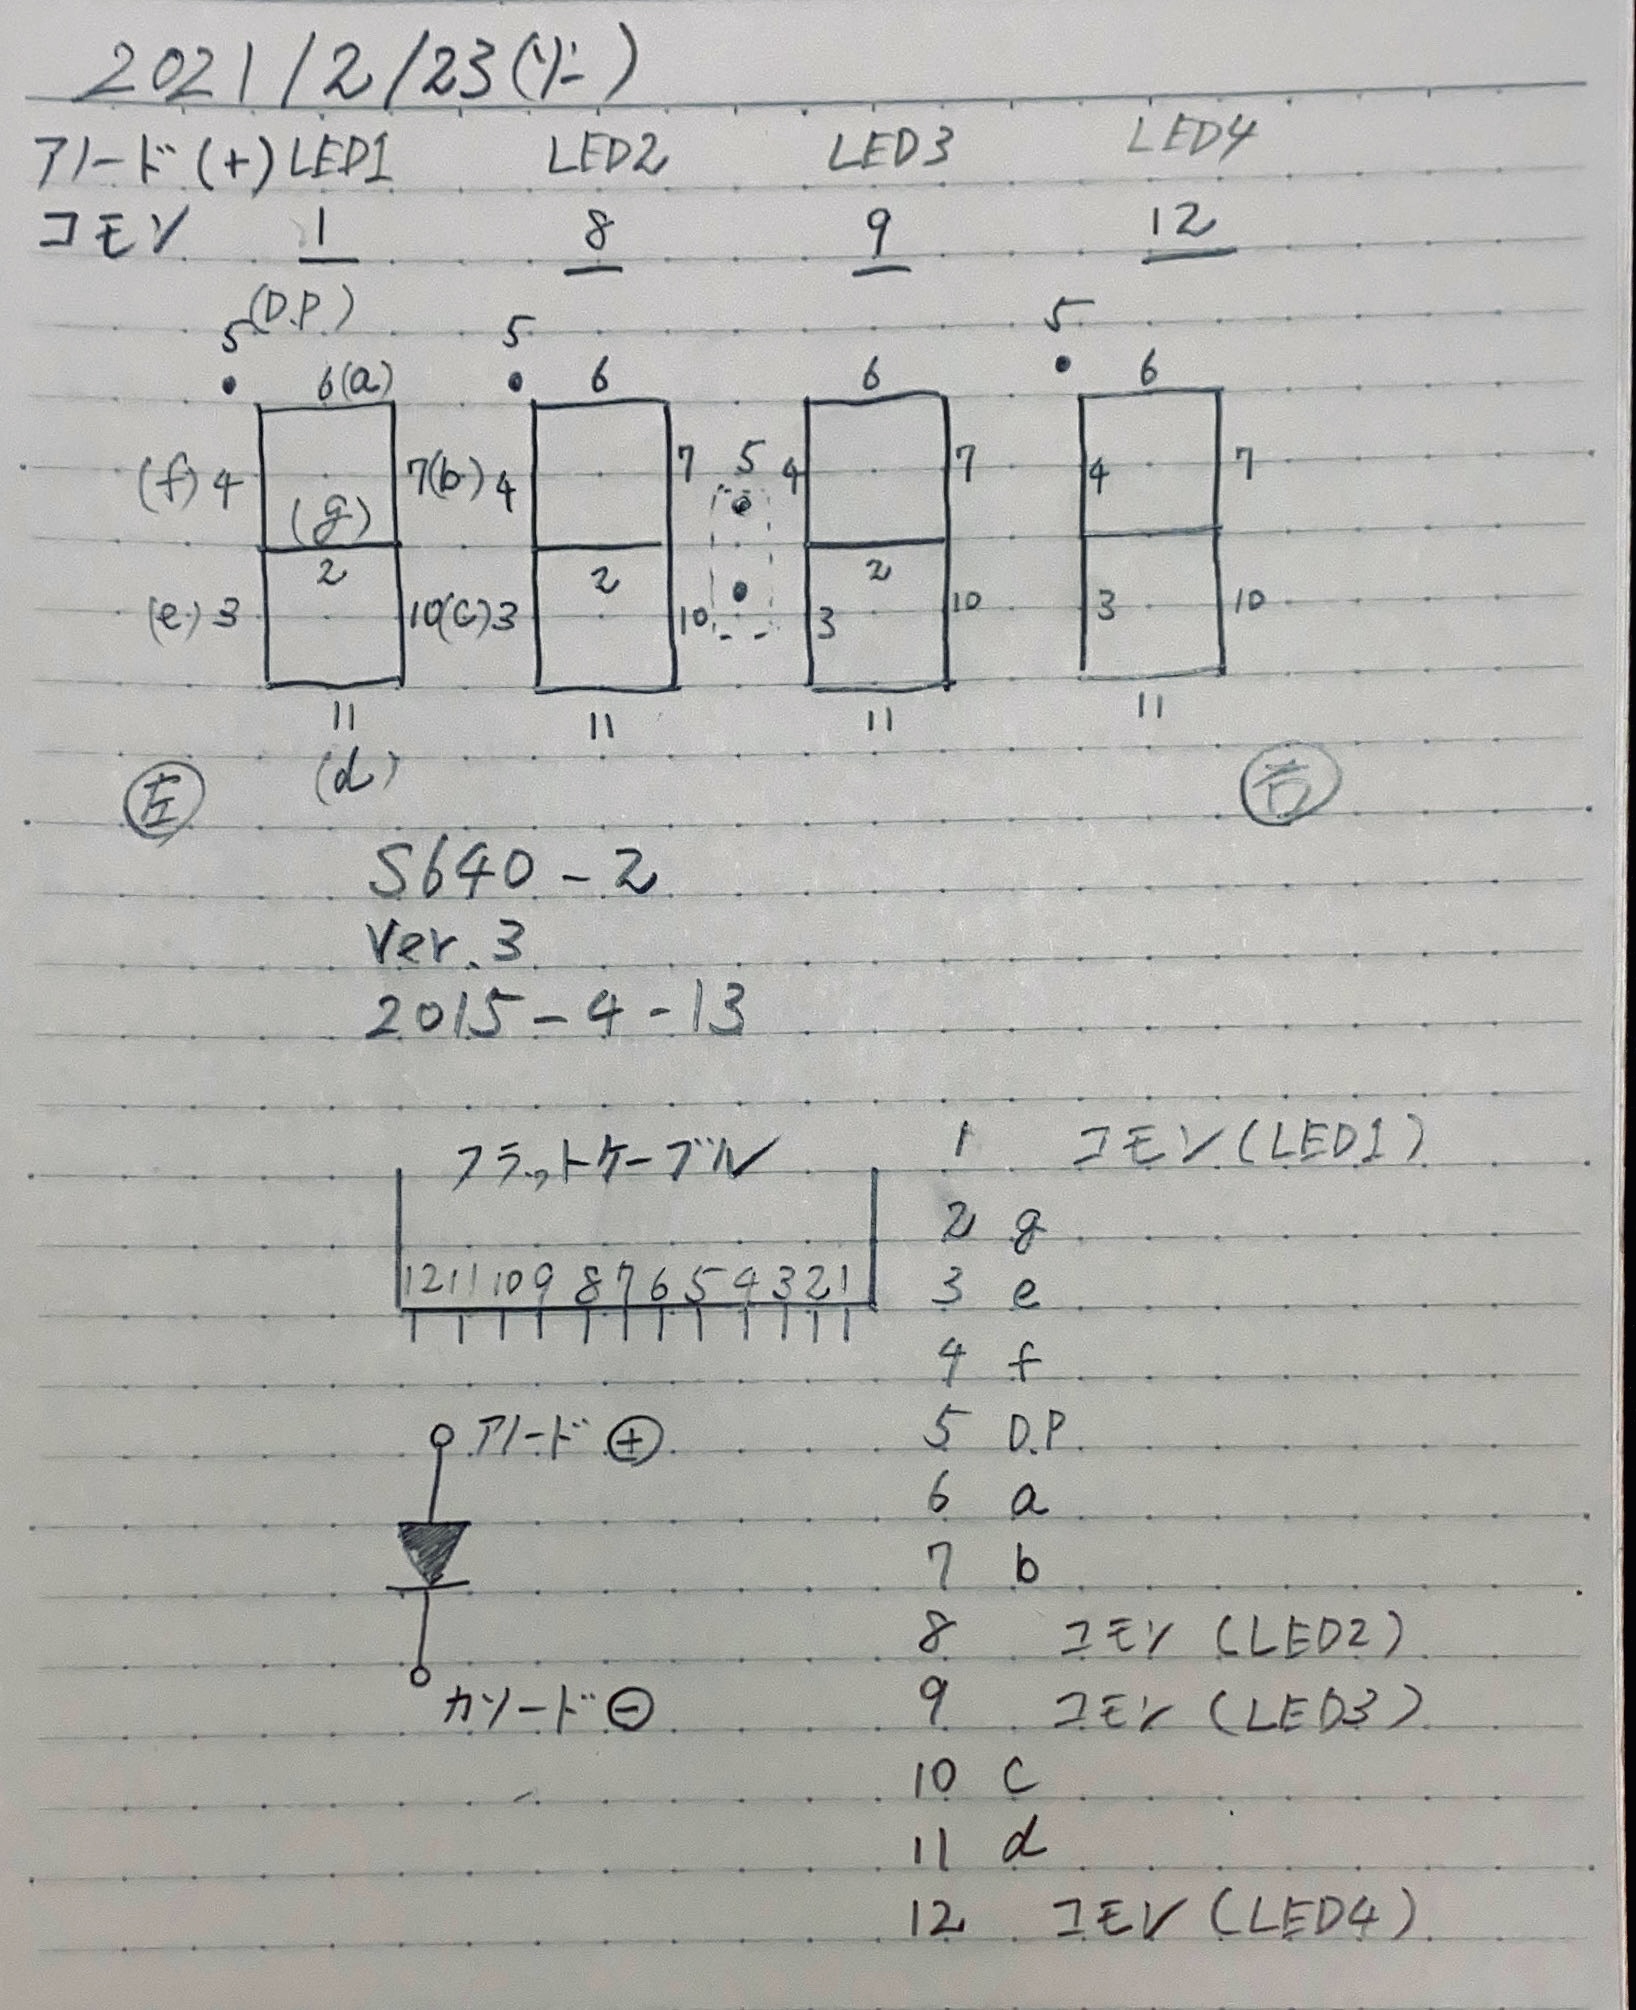 2021/2/23(火)
アノード(+) LED1 LED2 LED3 LED4
コモン 1 8 9 12
5(D.P.) 5 5
6(a) 6 6 6
(f) 4 7(b) 4 7 5 4 7 4 7
(g)
2 2 2
(e) 3 10(c) 3 10 3 10 3 10
11 11 11 11
(d)
左 右
S640-2
Ver.3
2015-4-13
フラットケーブル
12 11 10 9 8 7 6 5 4 3 2 1
アノード ⊕
カソード ⊖
1 コモン(LED1)
2 g
3 e
4 f
5 D.P.
6 a
7 b
8 コモン(LED2)
9 コモン(LED3)
10 c
11 d
12 コモン(LED4)